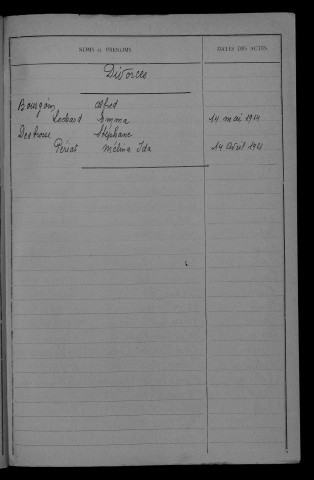 NOMS et PRÉNOMS DATES DES ACTES
Divorces
Bourgoin Alfred
Lechard Emma 14 mai 1914
Stéphane
Périat Mélina Ida 14 Avril 1921